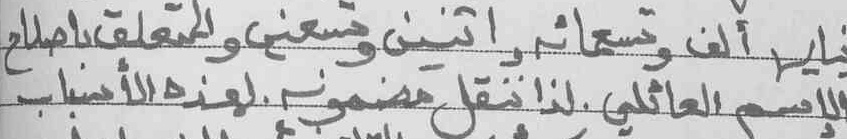 يناير ألف وتسعمائه واثنين وتسعين والمتعلق باصلاح
الاسم العائلي. لذا ننقل مضمونه. لهذه الأسباب